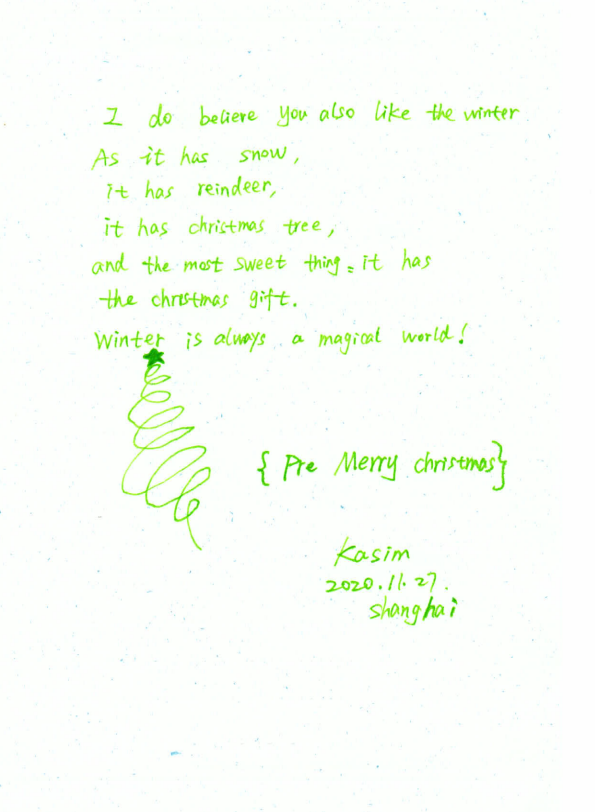 I do believe you also like the winter
As it has snow,
it has reindeer,
it has christmas tree,
and the most sweet thing: it has
the christmas gift.
Winter is always a magical world!
{ Pre Merry christmas}
Kasim
2020.11.27.
shanghai